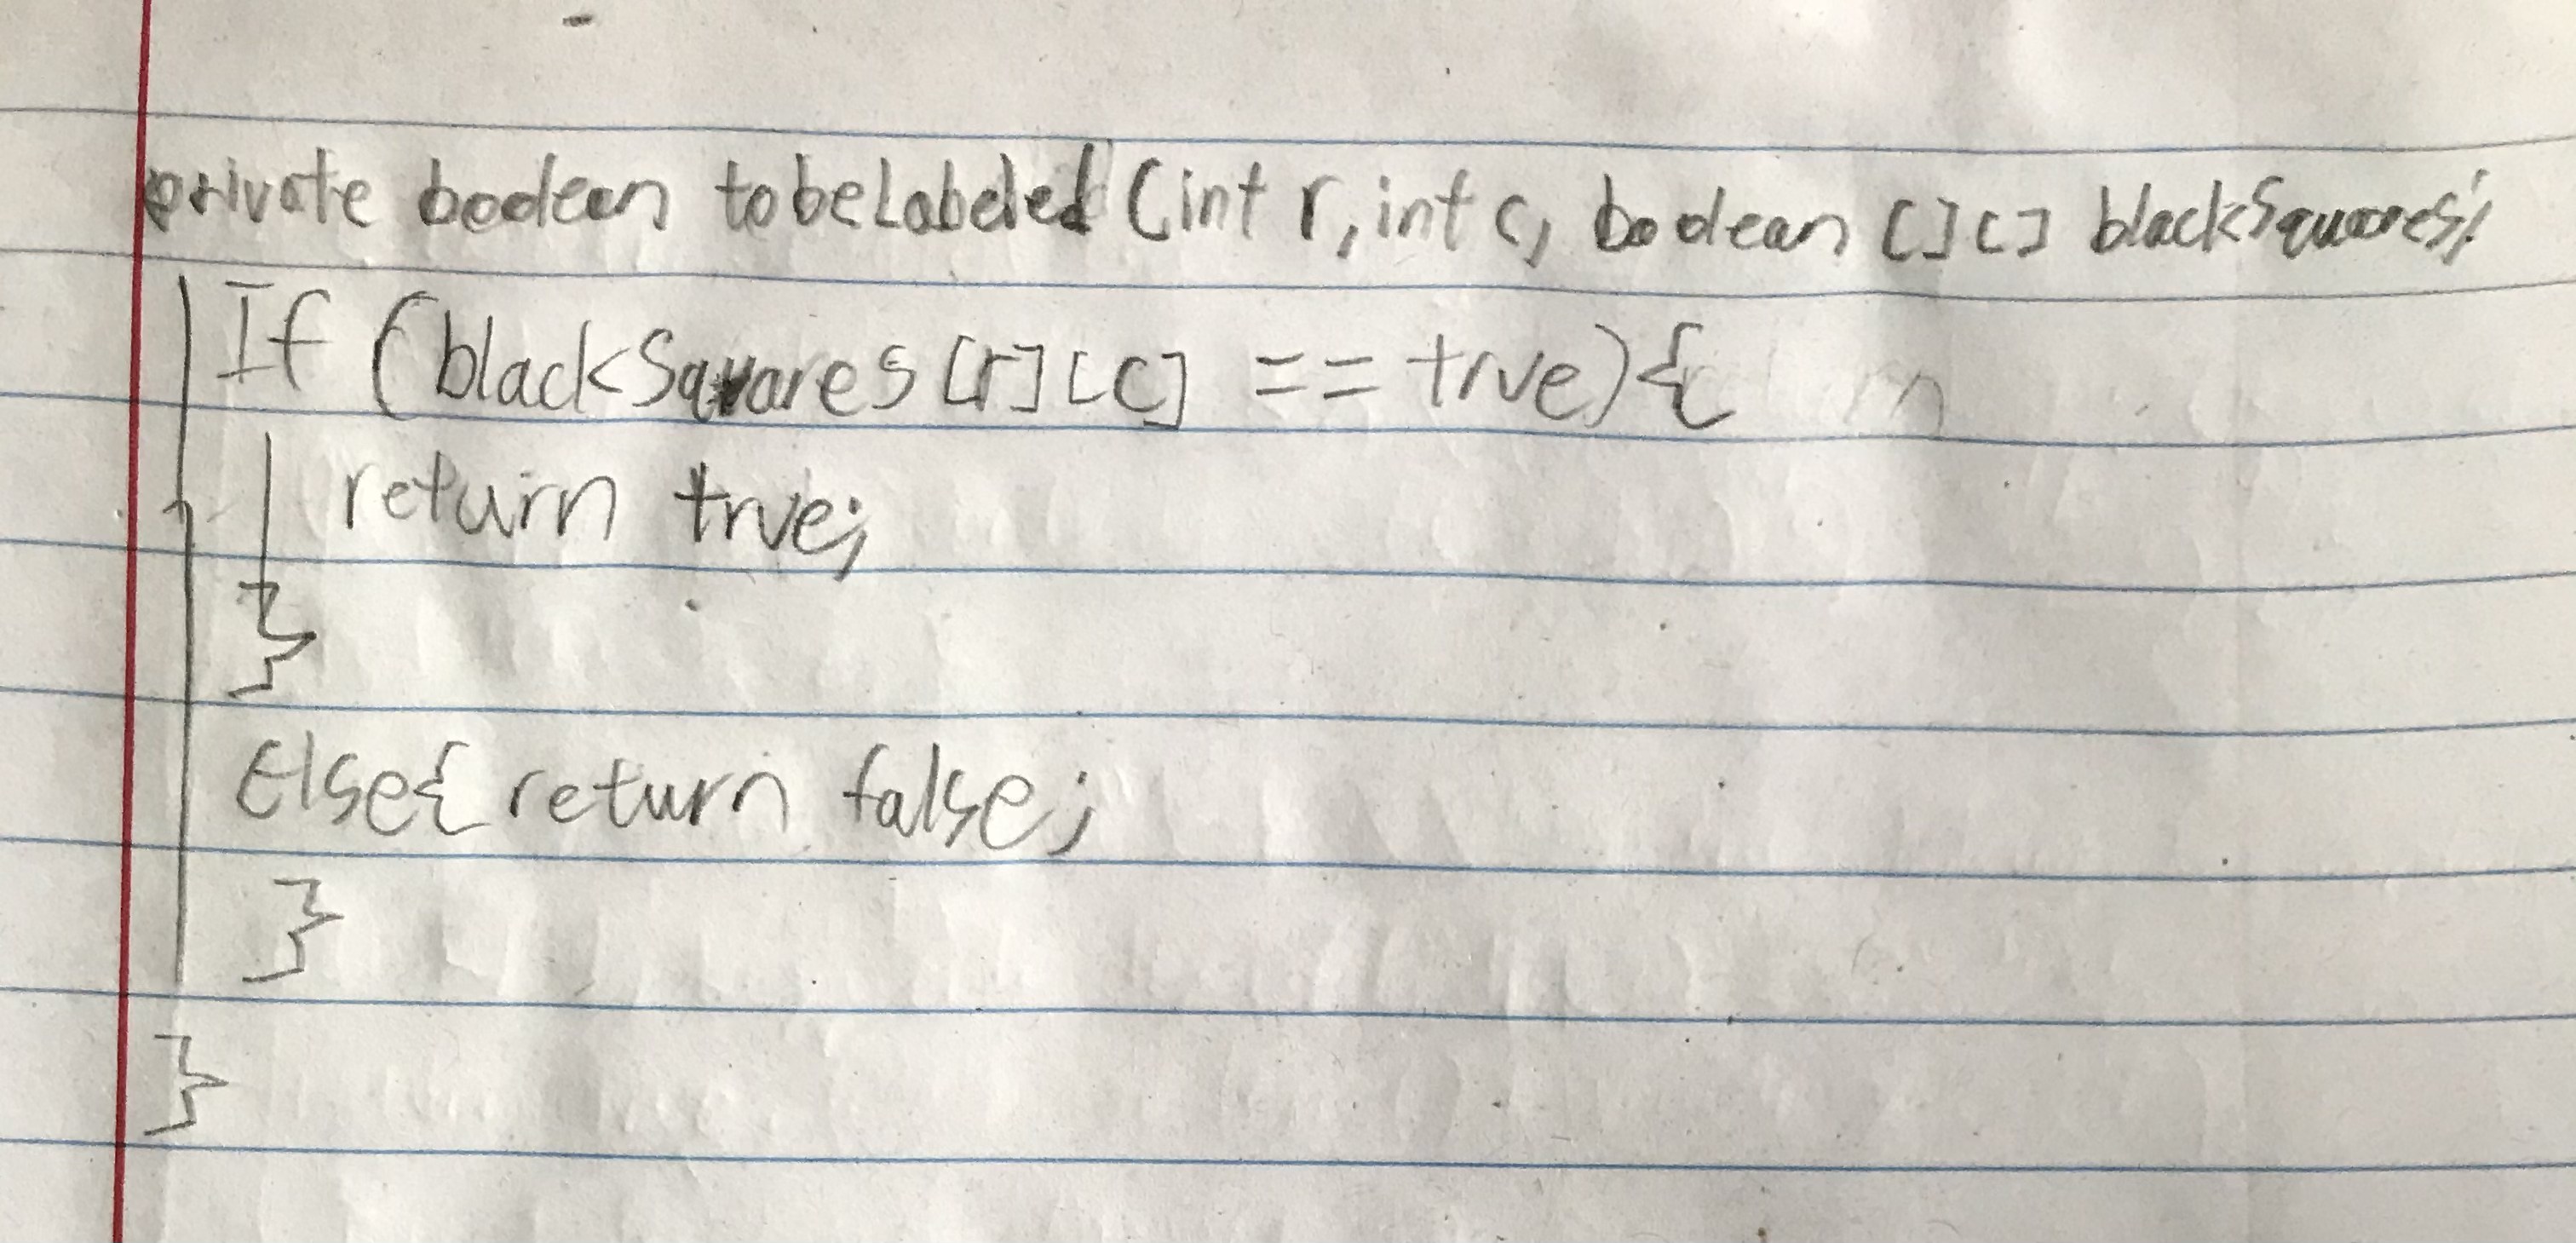 private boolean tobeLabeled (int r, int c, boolean [][] blackSquares;
If (blackSquares [r][c] == true){
return true;
}
Else{ return false;
}
}